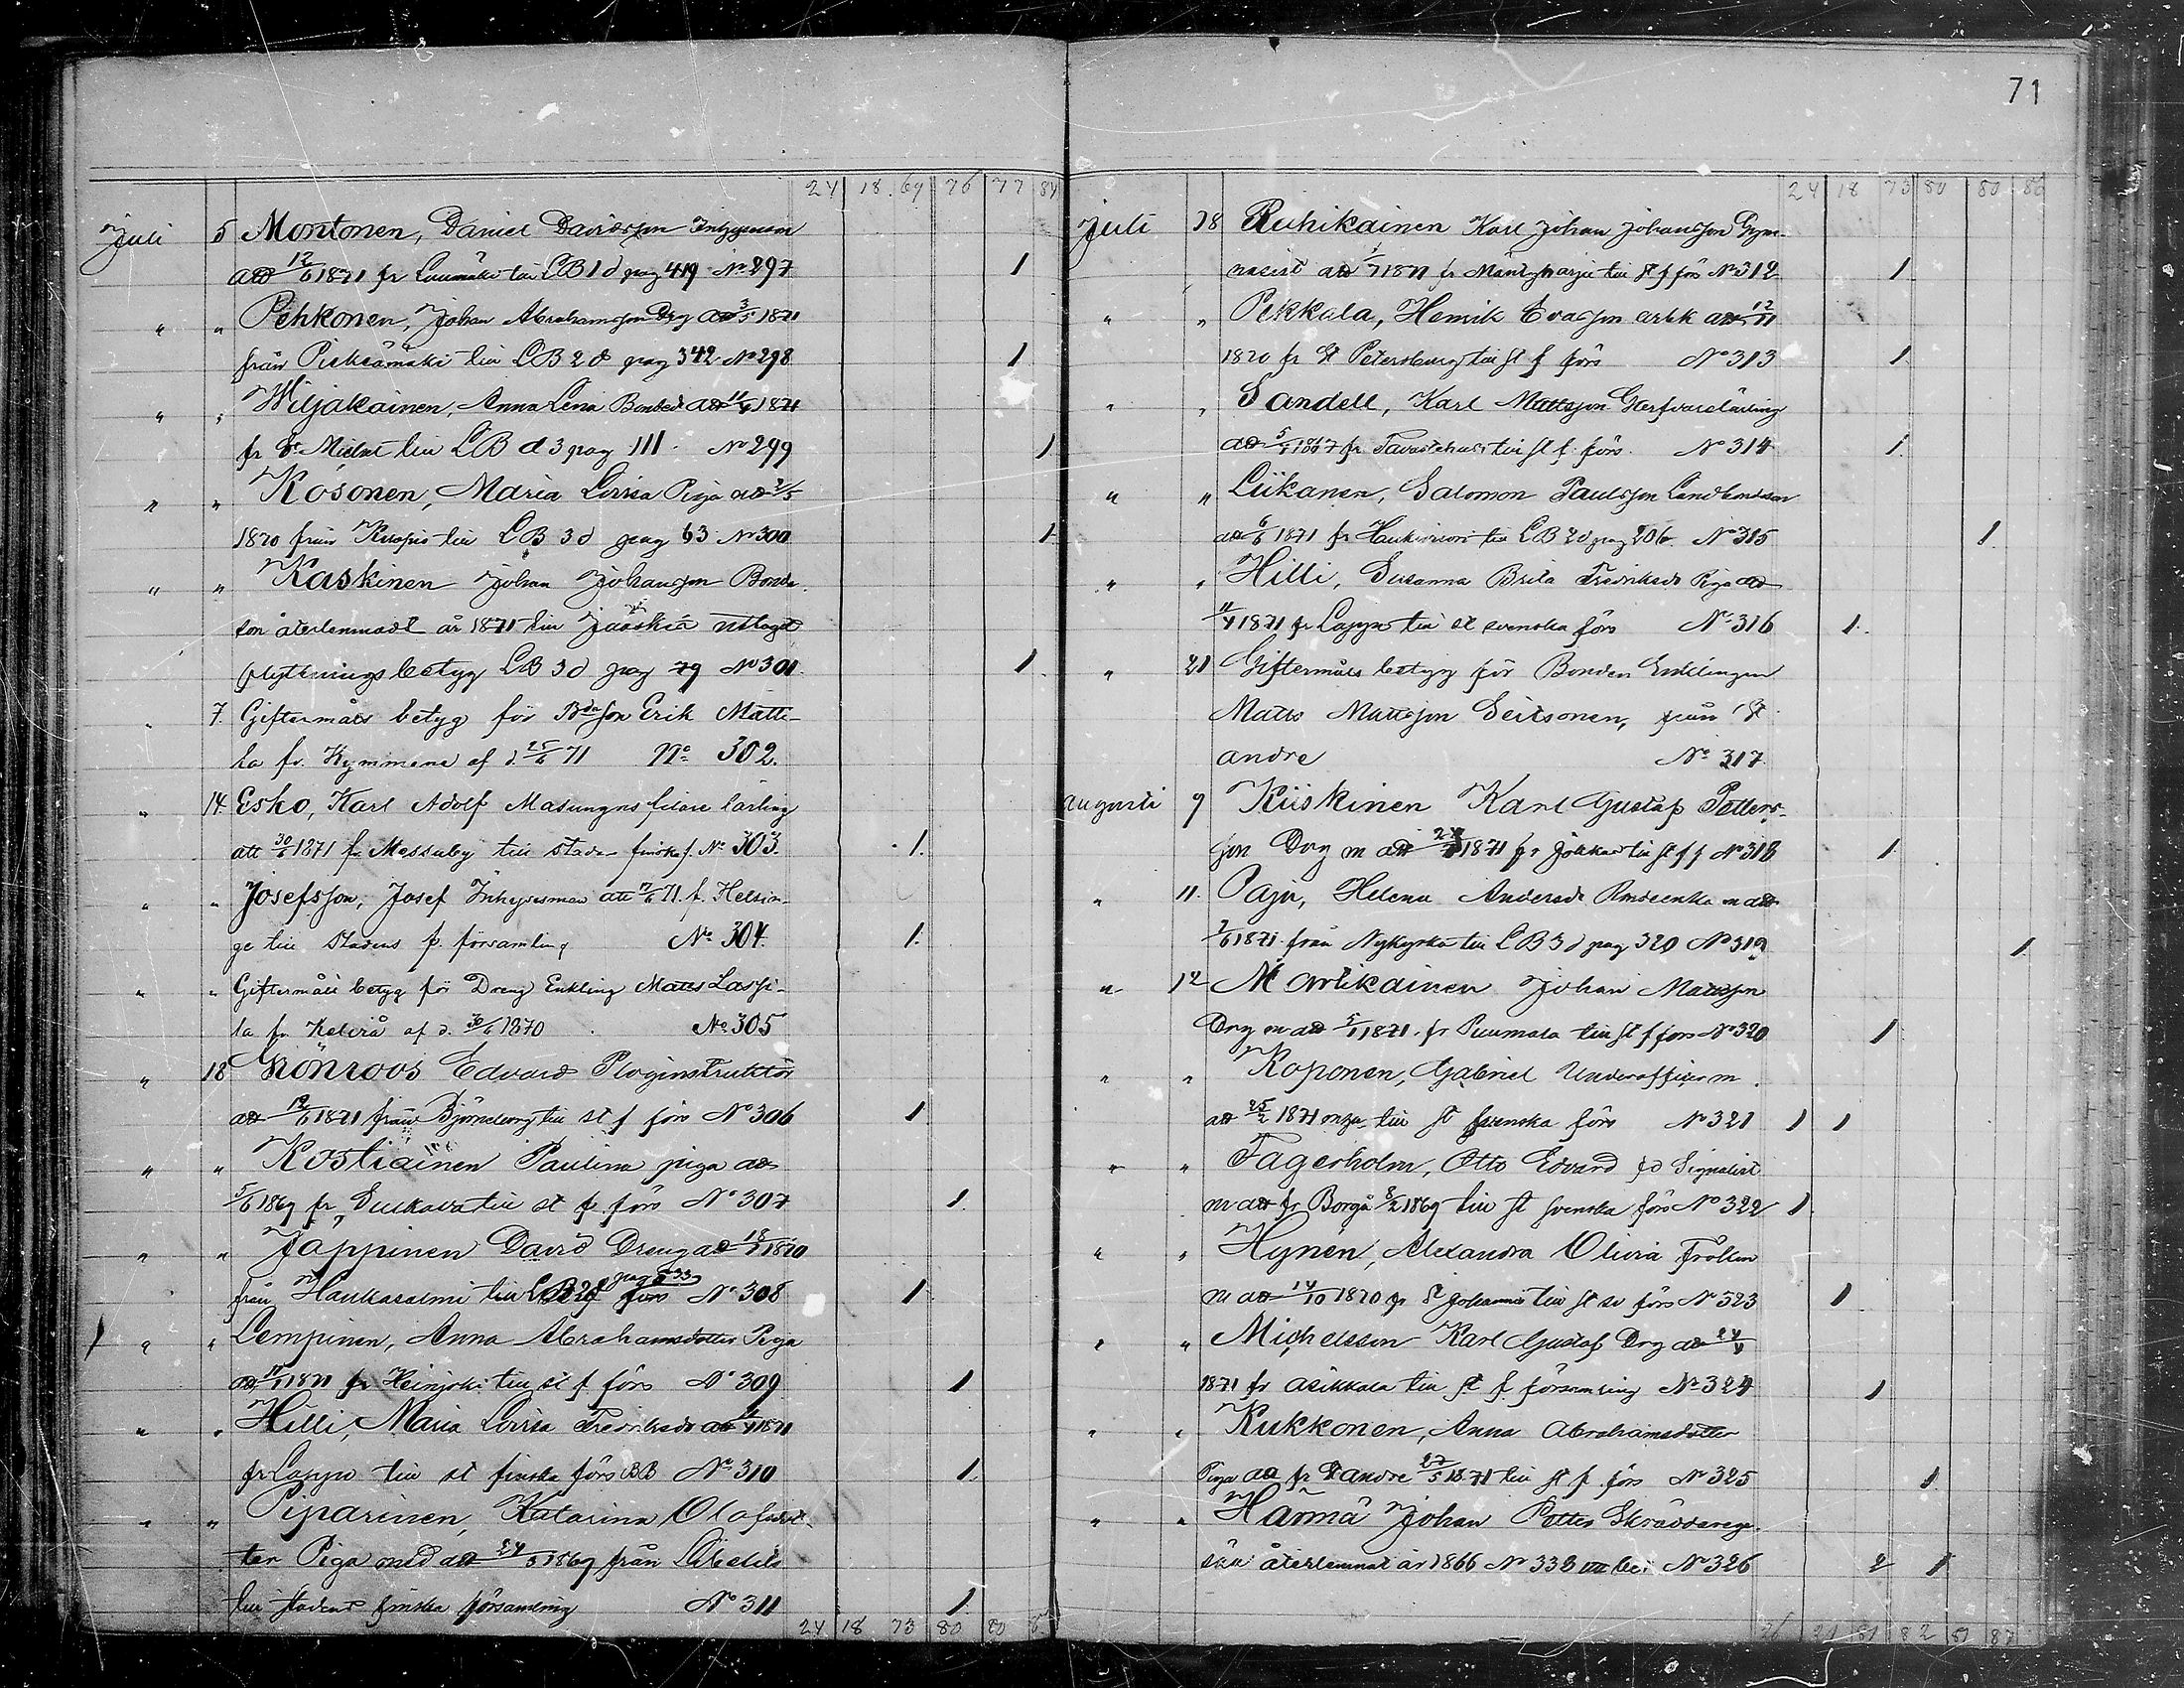 71
24 18 69 76 77 84
Juli 5 Montonen, Daniel Davidsson Inhysesman
att 12/6 1871 fr Luumäki till LB 1 d pag 419 No 297 1
" " Pehkonen, Johan Abrahamsson Drg att 3/5 1871
från Pieksämäki till LB 2 d pag 342 No 298 1
" " Wiljakainen, Anna Lena Bonded att 11/4 1871
fr St Michel till LB d 3 pag 111 No 299 1
" " Kosonen, Maria Lovisa Piga att 2/5
1870 från Kuopio till LB 3 d pag 63 No 300 1
" " Kaskinen Johan Johansson Bonde
son återlemnadt år 1871 till Jääskis uttaget
flyttningsbetyg LB 3 d pag 79 No 301 1
" 7 Giftermåls betyg för Bdeson Erik Matti-
la fr. Kymmene af d 25/6 71 No 302.
" 14 Esko, Karl Adolf Masungns filare lärling
att 30/6 1871 fr Messuby till stadens finska f. No 303. 1.
" " Josefsson, Josef Inhysesman att 7/6 71. f. Helsin-
ge till stadens f. församling No 304. 1.
" " Giftermåls betyg för Dreng Enkling Matts Lassi-
la fr Kelviå af d. 30/6 1870 No 305
" 18 Grönroos Edvard Ploginstruktör
att 12/6 1871 från Björneborg till st f förs No 306 1
" " Kostiainen Paulina piga att
5/6 1869 fr Sulkava till st f. förs No 307 1.
" " Jäppinen David Dreng att 18/7 1870
pag 533
från Haukasalmi till LB 2 d förs No 308 1
" " Lempinen, Anna Abrahamsdotter Piga
att 11/7 1871 fr Heinjoki till st f förs No 309 1
" " Hilli, Maria Lovisa Fredriksdr att 11/4 1871
fr Lappo till st finska förs BB No 310 1.
" " Piparinen, Katarina Olofsdot-
ter Piga med att 24/5 1869 från Libelits
till stadens finska församling No 311 1.
24 18 73 80 80
24 18 73 80 80 86
Juli 18 Ruhikainen Karl Johan Johansson Gym-
nasist att 1/7 1871 fr Mäntyharju till st f förs No 312 1.
" " Pekkala, Henrik Evasson arbk att 12/11
1870 fr St Petersburg till st f förs No 313 1.
" " Sandell, Karl Mattsson Garfvarelärling
att 5/5 1867 fr Tavastehus till st f. förs. No 314 1.
" " Liikanen, Salomon Paulsson Landbondeson
att 6/6 1871 fr Haukivuori till LB 2 d pag 206. No 315 1.
" " Hilli, Susanna Brita Fredriksdr Piga att
11/4 1871 fr Lappo till st svenska förs No 316 1.
" 21 Giftermåls betyg för Bonden Enklingen
Matts Mattsson Seitsonen, från St
andre No 317
augusti 9 Kiiskinen Karl Gustaf Petters-
son Drg m att 1871 fr Jokkas till st f f No 318 1.
" 11. Paju, Helena Andersdr Bondeenka m att
7/6 1871 från Nykyrka till LB 3 d pag 320 No 319 1
" 12 Martikainen Johan Mattsson
Drg m att 5/1 1871 fr Puumala till st f fors No 320 1
" " Koponen, Gabriel Underofficer m.
att 25/2 1871 till st svenska förs No 321 1 1
" " Fagerholm, Otto Edvard fd Signalist
m att fr Borgå 8/2 1869 till st svenska förs No 322 1
" " Hynén, Alexandra Olivia Fröken
m att 14/10 1870 fr St Johannis till st sv förs No 323 1
" " Michelsson Karl Gustaf Drg att
1871 fr Asikkala till st f. församling No 324 1
" " Kukkonen, Anna Abrahamsdotter
Piga att fr St andre 27/5 1871 till st f. förs No 325 1
" " Härmä Johan Petter Skräddarege-
säll återlemnat år 1866 No 332 No 326 2 1
26 21 81 82 81 87